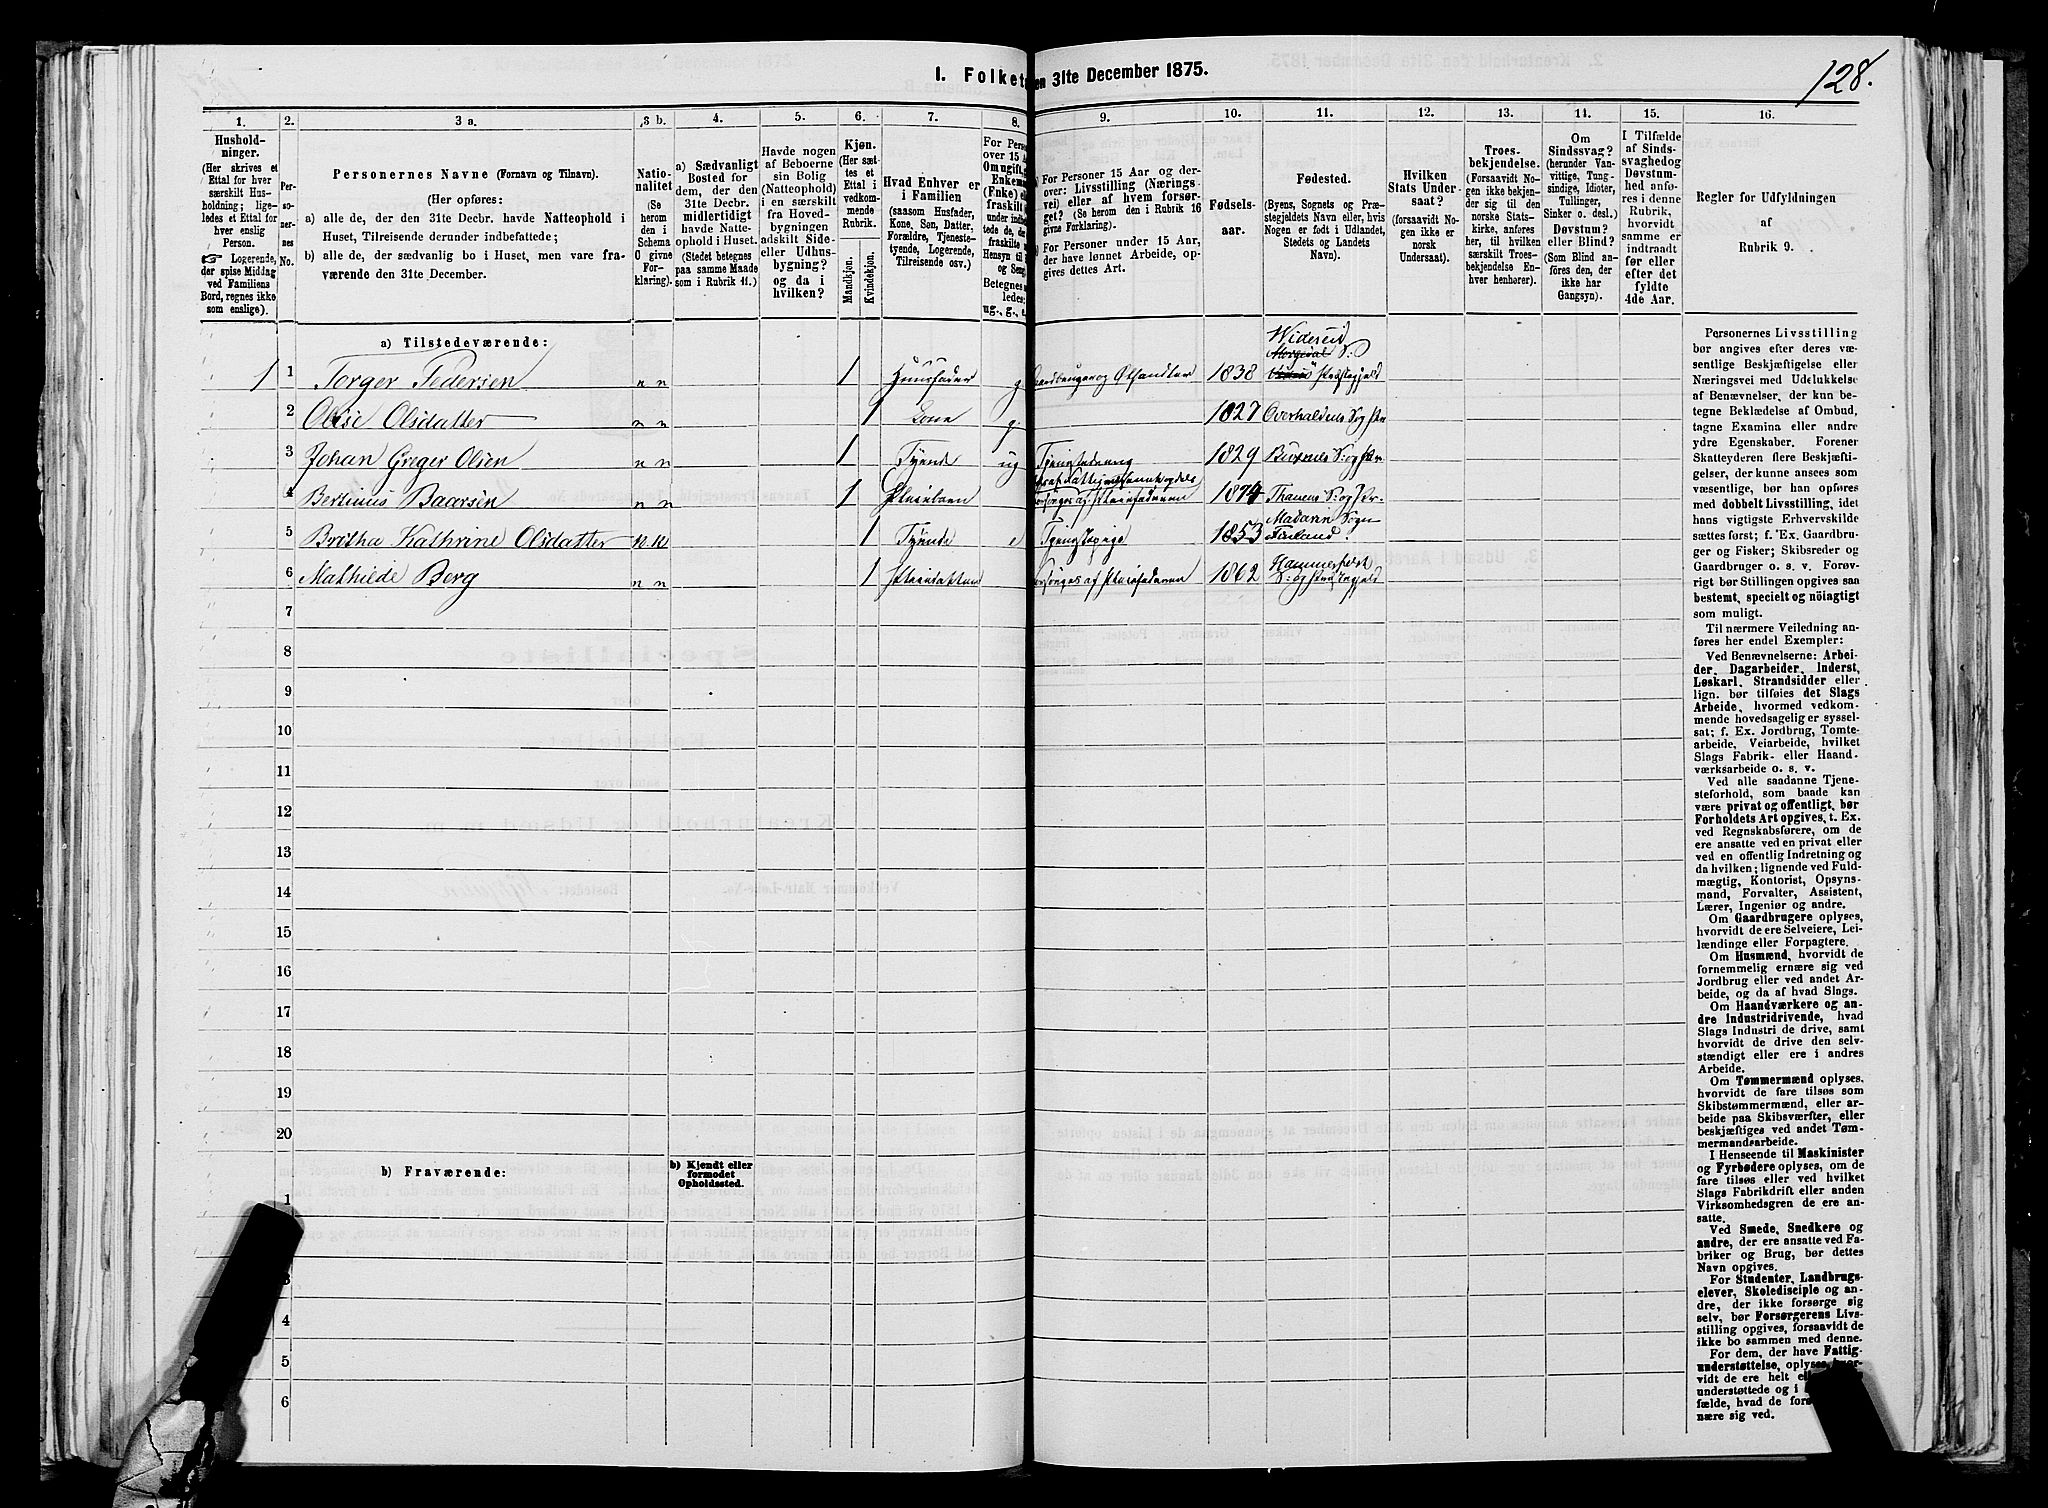 128.
I. Folket
en 31te December 1875.
1.
2.
3 a.
3 b.
4.
5.
6.
7.
8.
9.
10.
11.
12.
13.
14.
15.
16.
Hushold-
ninger.
(Her skrives et
Ettal for hver
særskilt Hus-
holdning; lige-
ledes et Ettal for
hver enslig
Person.
Logerende,
der spise Middag
ved Familiens
Bord, regnes ikke
som enslige).
Per-
so-
ner-
nes
No.
Personernes Navne (Fornavn og Tilnavn).
(Her opføres:
a) alle de, der den 31te Decbr. havde Natteophold i
Huset, Tilreisende derunder indbefattede;
b) alle de, der sædvanlig bo i Huset, men vare fra-
værende den 31te December.
Natio-
nalitet
(Se
herom
den i
Schema
O givne
For-
klaring).
a) Sædvanligt
Bosted for
dem, der den
31te Decbr.
midlertidigt
havde Natte-
ophold i Huset.
(Stedet betegnes
paa samme Maade
som i Rubrik 11.)
Havde nogen
af Beboerne
sin Bolig
(Natteophold)
i en særskilt
fra Hoved-
bygningen
adskilt Side-
eller Udhus-
bygning?
og da i
hvilken?
Kjøn.
(Her sæt-
tes et
Ettal i
vedkom-
mende
Rubrik.
Mandkjøn.
Kvindekjøn.
Hvad Enhver er
i Familien
(saasom Husfader,
Kone, Søn, Datter,
Forældre, Tjeneste-
tyende, Logerende,
Tilreisende osv.)
For Person
over 15 Aa
Om ugift, g
Enkem
(Fnke) e
fraskilt
under indb
tede de, d
fraskilte
Hensyn til
og Seng
Betegnes
ledes:
ug., g., e
a) For Personer 15 Aar og der-
over: Livsstilling (Nærings-
vei) eller af hvem forsør-
get? (Se herom den i Rubrik 16
givne Forklaring).
b) For Personer under 15 Aar,
der have lønnet Arbeide, op-
gives dettes Art.
Fødsels-
aar.
Fødested.
(Byens, Sognets og Præ-
stegjeldets Navn eller, hvis
Nogen er født i Udlandet,
Stedets og Landets
Navn).
Hvilken
Stats Under-
saat?
(forsaavidt No-
gen ikke er
norsk
Undersaat).
Troes-
bekjendelse.
(Forsaavidt No-
gen ikke bekjen-
der sig til den
norske Stats-
kirke, anføres
her, til hvilken
særskilt Troes-
bekjendelse En-
hver henhører).
Om
Sindssvag?
(herunder Van-
vittige, Tung-
sindige, Idioter,
Tullinger,
Sinker o. desl.)
Døvstum?
eller Blind?
(Som Blind an-
føres den, der
ikke har
Gangsyn).
I Tilfælde
af Sinds-
svaghed og
Døvstum-
hed anfø-
res i denne
Rubrik,
hvorvidt
samme er
indtraadt
før eller
efter det
fyldte
4de Aar.
Regler for Udfyldningen
af
Rubrik 9.
a) Tilstedeværende:
1 1 Torger Pedersen n n 1 Huusfader g Gaardbruger og Ølhandler 1838 Wideseid S: Præstegjeld
2 Olise Olsdatter n n 1 Kone g. 1827 Overhaldens Sog Pr
3 Johan Greger Olsen n n 1 Tyende ug 1829 S: og Pr
4 Bertinus Baarsen n n 1 Pleiebarn forsørges af Pleiefaderen 1874 Thanens S: og Pr.
5 Britha Kathrine Olsdatter n.n 1 Tyende e Tjenestepige 1853 Sogn Finland.
6 Mathilde Berg n n 1 Pleiedatter forsørges af Pleiefaderen 1862 Hammerfest S: og Præstegjeld
7
8
9
10
11
12
13
14
15
16
17
18
19
20
b) Fraværende:
b) Kjendt eller
formodet
Opholdssted.
1
3
4
5
6
Personernes Livsstilling
bør angives efter deres væ-
sentlige Beskjæftigelse eller
Næringsvei med Udelukkelse
af Benævnelser, der kun be-
tegne Beklædelse af Ombud,
tagne Examina eller andre
ydre Egenskaber. Forener
Skatteyderen flere Beskjæfti-
gelser, der kunne ansees som
væsentlige, bør han opføres
med dobbelt Livsstilling, idet
hans vigtigste Erhvervskilde
sættes først; f. Ex. Gaardbru-
ger og Fisker; Skibsreder og
Gaardbruger o. s. v. Forøv-
rigt bør Stillingen opgives saa
bestemt, specielt og nöiagtigt
som muligt.
Til nærmere Veiledning an-
føres her endel Exempler:
Ved Benævnelserne: Arbei-
der, Dagarbeider, Inderst,
Løskarl, Strandsidder eller
lign. bør tilføies det Slags
Arbeide, hvormed vedkom-
mende hovedsagelig er syssel-
sat; f. Ex. Jordbrug, Tomte-
arbeide, Veiarbeide, hvilket
Slags Fabrik- eller Haand-
værksarbeide o. s. v.
Ved alle saadanne Tjene-
steforhold, som baade kan
være privat og offentligt, bør
Forholdets Art opgives, t. Ex.
ved Regnskabsførere, om de
ere ansatte ved en privat eller
ved en offentlig Indretning og
da hvilken; lignende ved Fuld-
mægtig, Kontorist, Opsyns-
mand, Forvalter, Assistent,
Lærer, Ingeniør og andre.
Om Gaardbrugere oplyses,
hvorvidt de ere Selveiere, Lei-
lændinge eller Forpagtere.
Om Husmænd, hvorvidt de
fornemmelig ernære sig ved
Jordbrug eller ved andet Ar-
beide, og da af hvad Slags.
Om Haandværkere og an-
dre Industridrivende, hvad
Slags Industri de drive, samt
hvorvidt de drive den selv-
stændigt eller ere i andres
Arbeide.
Om Tømmermænd oplyses,
hvorvidt de fare tilsøs som
Skibstømmermænd, eller ar-
beide paa Skibsværfter, eller
beskjæftiges ved andet Tøm-
mermandsarbeide.
I Henseende til Maskinister
og Fyrbødere oplyses, om de
fare tilsøs eller ved hvilket
Slags Fabrikdrift eller anden
Virksomhedsgren de ere an-
satte.
Ved Smede, Snedkere og
andre, der ere ansatte ved Fa-
briker og Brug, bør dettes
Navn opgives.
For Studenter, Landbrugs-
elever, Skoledisciple og an-
dre, der ikke forsørge sig
selv, bør Forsørgerens Livs-
stilling opgives, forsaavidt de
ikke bo sammen med denne.
For dem, der have Fattig-
understøttelse, oplyses, hvor-
vidt de ere helt el
understøttede og i
fælde, hvad de fors
nære sig ved.